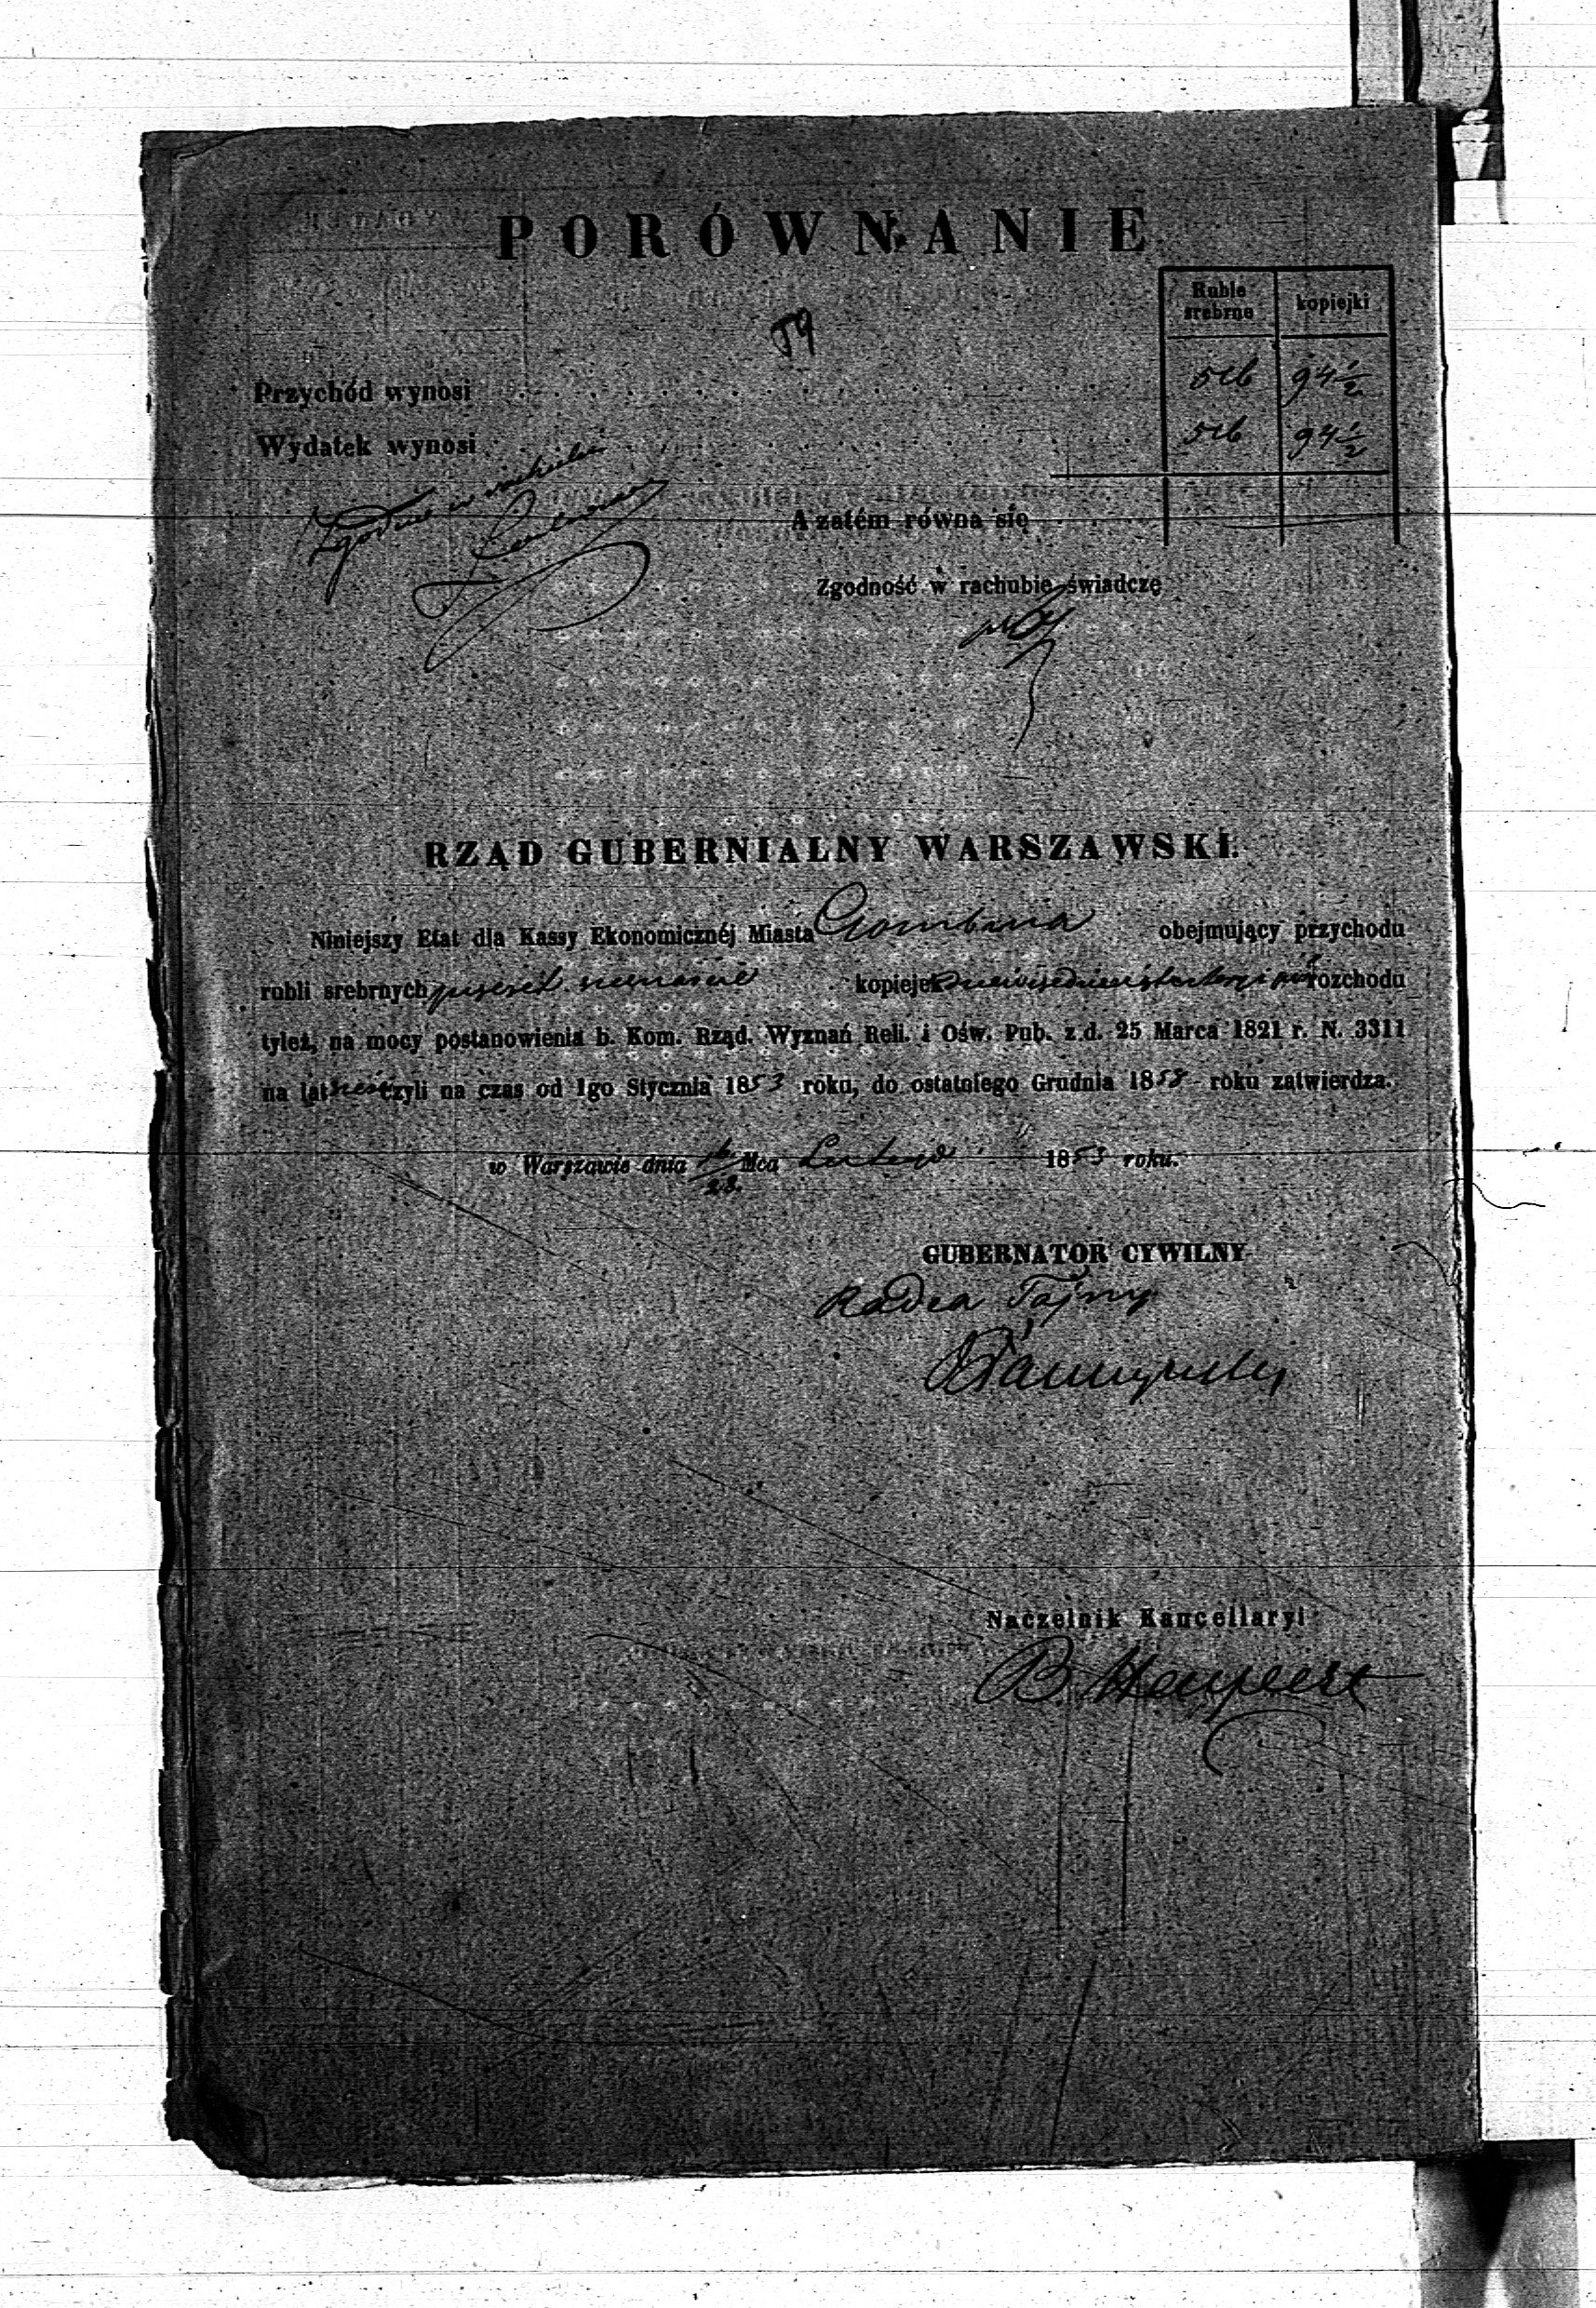 PORÓWNANIE
Ruble srebrne kopiejki
59
Przychód wynosi 516 94 1/2
Wydatek wynosi 516 94 1/2
Zgodne w rachubie
A zatém równa się
Zgodność w rachubie świadczę
RZĄD GUBERNIALNY WARSZAWSKI.
Niniejszy Etat dla Kassy Ekonomicznéj Miasta Gombina obejmujący przychodu
rubli srebrnych pięćset szesnaście kopiejek dziewięćdziesiąt cztery i pół rozchodu
tyleż, na mocy postanowienia b. Kom. Rząd. Wyznań Reli. i Ośw. Pub. z d. 25 Marca 1821 r. N. 3311
na lat sześć czyli na czas od 1go Stycznia 1853 roku, do ostatniego Grudnia 1858 roku zatwierdza.
w Warszawie dnia 16/28 Mca Lutego 1853 roku.
GUBERNATOR CYWILNY
Radca Tajny
Naczelnik Kancellaryi